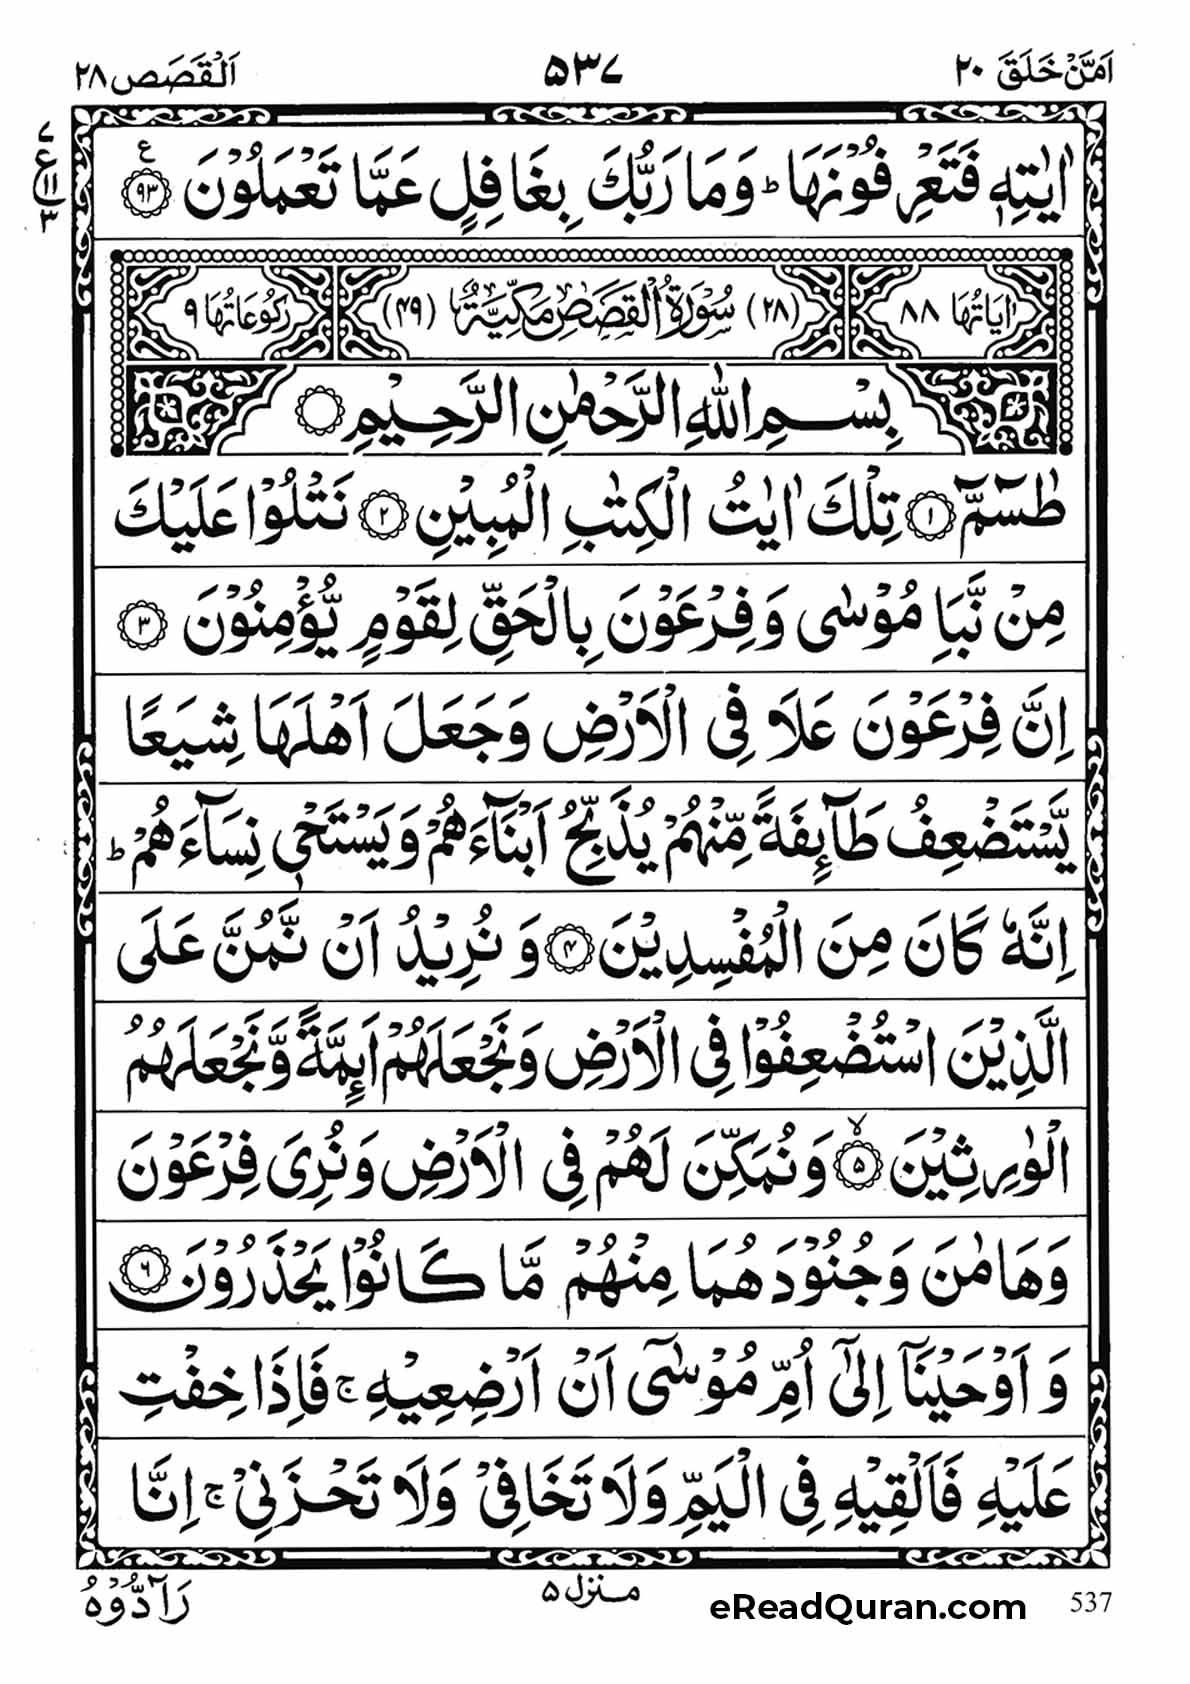 اَمَّنْ خَلَقَ ۲۰
۵۳۷
اَلْقَصَص ۲۸
اٰیٰتِهٖ فَتَعْرِفُوْنَهَا ؕ وَمَا رَبُّكَ بِغَافِلٍ عَمَّا تَعْمَلُوْنَ ﴿۹۳﴾ ع
۷
ع ۱۱
۳
اٰیَاتُهَا ۸۸
(۲۸) سُوْرَةُ الْقَصَصِ مَكِّیَّةٌ (۴۹)
رُكُوْعَاتُهَا ۹
بِسْمِ اللّٰهِ الرَّحْمٰنِ الرَّحِیْمِ
طٰسٓمّٓ ﴿۱﴾ تِلْكَ اٰیٰتُ الْكِتٰبِ الْمُبِیْنِ ﴿۲﴾ نَتْلُوْا عَلَیْكَ
مِنْ نَّبَاِ مُوْسٰی وَفِرْعَوْنَ بِالْحَقِّ لِقَوْمٍ یُّؤْمِنُوْنَ ﴿۳﴾
اِنَّ فِرْعَوْنَ عَلَا فِی الْاَرْضِ وَجَعَلَ اَهْلَهَا شِیَعًا
یَّسْتَضْعِفُ طَآئِفَةً مِّنْهُمْ یُذَبِّحُ اَبْنَآءَهُمْ وَیَسْتَحْیٖ نِسَآءَهُمْ ؕ
اِنَّهٗ كَانَ مِنَ الْمُفْسِدِیْنَ ﴿۴﴾ وَ نُرِیْدُ اَنْ نَّمُنَّ عَلَی
الَّذِیْنَ اسْتُضْعِفُوْا فِی الْاَرْضِ وَنَجْعَلَهُمْ اَىِٕمَّةً وَّنَجْعَلَهُمُ
الْوٰرِثِیْنَ ﴿۵﴾ۙ وَنُمَكِّنَ لَهُمْ فِی الْاَرْضِ وَنُرِیَ فِرْعَوْنَ
وَهَامٰنَ وَجُنُوْدَهُمَا مِنْهُمْ مَّا كَانُوْا یَحْذَرُوْنَ ﴿۶﴾
وَ اَوْحَیْنَاۤ اِلٰۤی اُمِّ مُوْسٰۤی اَنْ اَرْضِعِیْهِ ۚ فَاِذَا خِفْتِ
عَلَیْهِ فَاَلْقِیْهِ فِی الْیَمِّ وَلَا تَخَافِیْ وَلَا تَحْزَنِیْ ۚ اِنَّا
رَآدُّوْهُ
منزل ۵
eReadQuran.com
537